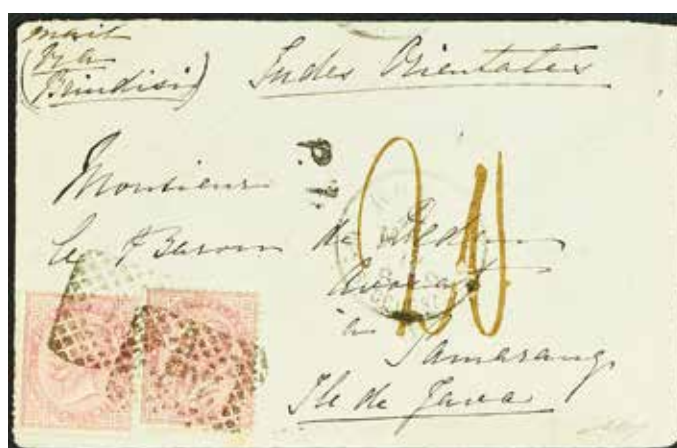 mail
(via
Brindisi)
Indes Orientales
P.D.
Monsieur
le Baron de
20
Avocat
à
Samarang
Ile de Java